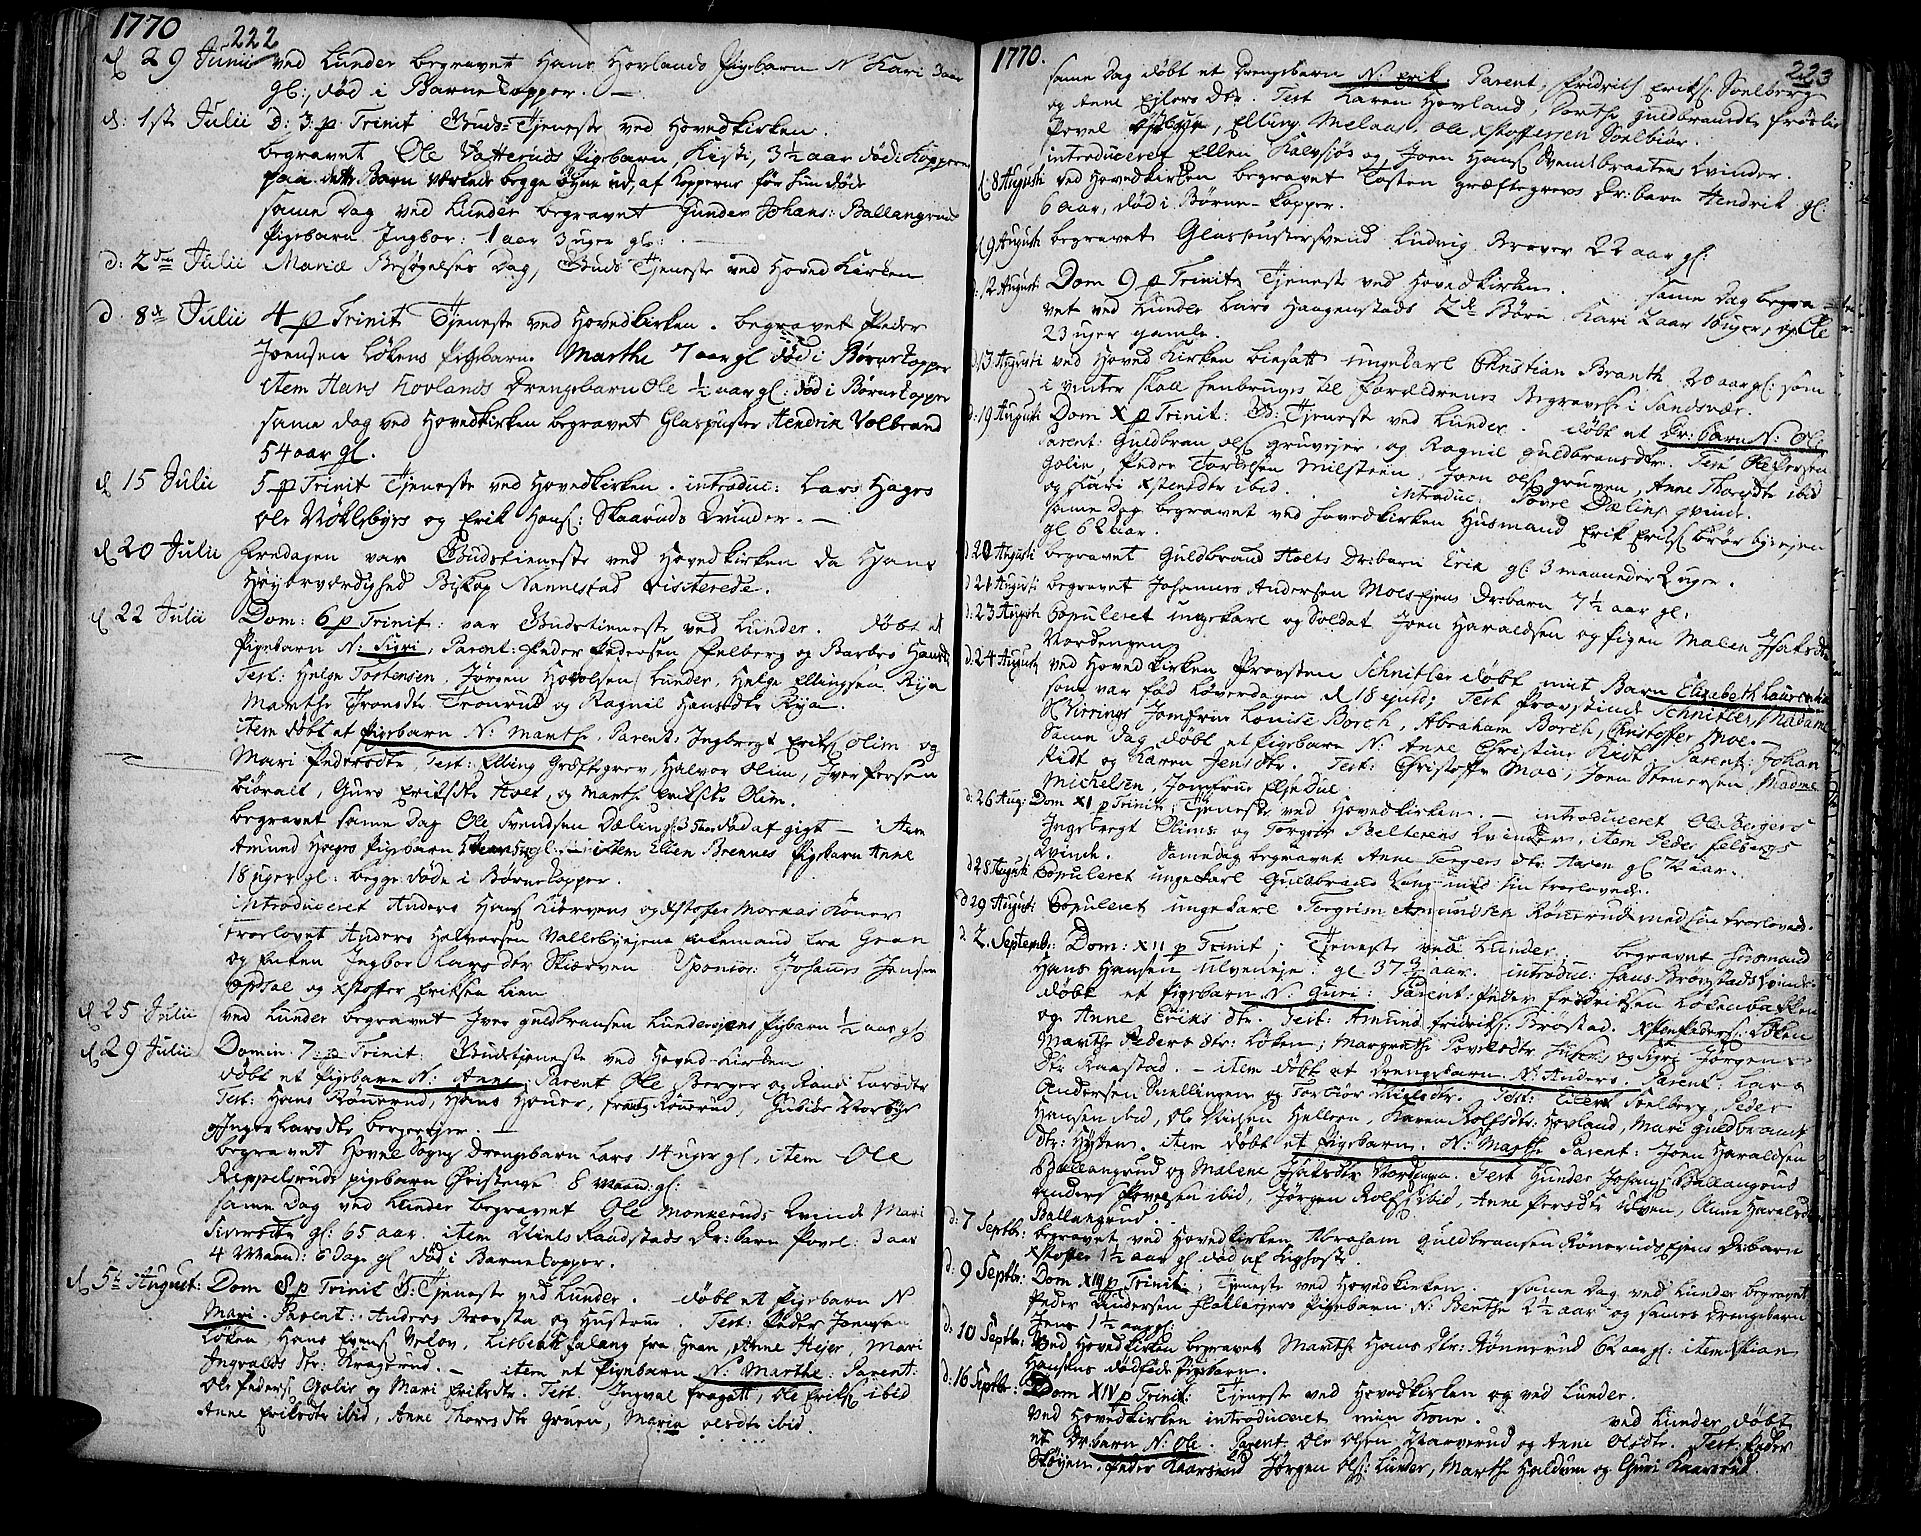 1770
222
d 29 Junii ved Lunder begravet Hans Hovlands Pigebarn N Kari 3 aar
gl:, død i Barnekopper. —
d: 1st Julii D: 3. p. Trinit Guds-Tjeneste ved Hovedkirken.
begravet Ole Vatteruds Pigebarn, Kisti, 3½ aar død i Kopperne
paa dette Barn begge øyne ud, af Kopperne før hun døde
samme Dag ved Lunder begravet Gunder Johans: Ballangrud
Pigebarn Ingbor: 1 aar 3 uger gl:
d: 2den Julii Mariæ Besøgelses Dag, Guds Tjeneste ved Hoved Kirken
d: 8de Julii 4 p Trinit Tjeneste ved Hovedkirken. begravet Peder
Joensen Løkens Pigebarn Marthe 7 aar gl død i Børnekopper
item Hans Hovlands Drengebarn Ole ½ aar gl: død i Børnekopper
samme dag ved Hovedkirken begravet Glaspuster Hendrik Volbrand
54 aar gl.
d 15 Julii 5 p Trinit Tjeneste ved Hovedkirken. introduc: Lars Hages
Ole Vøklebyes og Erik Hans: Skaaruds Qvinder. —
d 20 Julii Fredagen var Gudstieneste ved Hovedkirken da Hans
Høyærværdighed Biskop Nannestad visiterede.
d 22 Julii Dom: 6 p Trinit: var Gudstieneste ved Lunder. døbt et
Pigebarn N: Sigri, Parent: Peder Pedersen Felberg og Barbro Hansdtr
Test: Helge Tostensen, Jørgen Lunder, Helge Ellingsen Rya
Marthe Tronsdtr Tronrud og Ragnil Hansdtr Rya.
item døbt et Pigebarn N: Marthe. Parent: Ingbregt Eriks: Olim og
Mari Pedersdtr, Test: Elling Græftegrev, Halvor Olim, Iver Persen
Guro Eriksdtr Holt, og Marthe Eriksdtr Olim.
begravet samme Dag Ole Svendsen Dæling død af gigt — item
Amund Hages Pigebarn item Ellen Brennes Pigebarn Anne
18 uger gl: begge døde i Børnekopper.
introduceret Anders Hans: Kiørvens og Xstofer Mornæs Koner
trorlovet Anders Halvorsen Vællebyejens Enkemand fra Gran
og Enken Ingbor Larsdtr Skiærven Sponsor: Johannes Jensen
Opdal og Xstoffer Eriksen Lien
d 25 Julii ved Lunder begravet Iver Guldbransen Lunderejens Pigbarn ½ aar gl:
d 29 Julii Domin. 7. p. Trinit: Gudstjeneste ved Hoved-Kirken
døbt et Pigebarn N: Anne. Parent Ole Berger og Randi Larsdtr
Test: Hans Rønnerud, Hans Hauer, Rønnerud,
og Inger Larsdtr bergerejer.
begravet Drengebarn Lars 14 uger gl, item Ole
Reppelsruds pigebarn Christense 8 Maan: gl:
samme Dag ved Lunder begravet Ole Monkeruds Qvinde Mari
Siversdtr gl: 65 aar. item Niels Raadstads Dr: barn Povel: 3 aar
4 Maan: 6 Dage gl død i Barnekopper.
d 5te August: Dom 8 p Trinit G: Tjeneste ved Lunder. døbt et Pigebarn N
Mari Parent: Anders Provsta og Hustrue Test: Peder Joensen
Løken, Hans Evens: Velov, Lisbeth falang fra Gran, Anne Hejer, Mari
Ingvalds dtr: Kragerud. — item et Pigebarn N. Marthe: Parent:
Ole Peders: Golie og Mari Eriksdtr. Test. Ingval fragatt, Ole Eriks: ibid
Anne Eriksdtr ibid, Anne Thores dtr Gruen, Maria olsdtr ibid.
1770.
223
samme Dag døbt et Drengebarn N: Erik. Parent, Fridrich Eriks: Soelberg
og Anne Ejlersdtr. Test Karen Hovland, Dorthe Guldbrandsdtr Frøslie
Povel, Elling Melaas, Ole Xstoffersen Soelbiør.
introduceret Ellen Kalvsjøs og Joen Hans: Svendbraatens Qvinder.
d: 8 Augusti ved Hovedkirken begravet Tosten græftegrevs Dr: barn Hendrik gl:
6 aar, død i Børne-Kopper.
d 9 Augusti begravet Glaspustersvend Ludvig Braver 22 aar gl:
d. 12 Augusti Dom 9 p Trinit: Tjeneste ved Hovedkirken. samme Dag begra=
vet ved Lunder Lars Haagenstads 2de Børn Kari 2 aar 16 uger, og Ole
23 uger gamle.
d 13 Augusti ved Hoved Kirken biesatt ungekarl Christian Branth 20 aar gl: som
i vinter skall henbringes til Forældrenes Begravelse i Sandsvær.
d: 19 Augusti Dom X p Trinit: G: Tjeneste ved Lunder. døbt et Dr: barn N: Ole
Parent: Guldbran ols: gruvejer og Ragnil Guldbransdtr. Test Ole Persen
Golin, Peder Torkelsen Milsteen, Joen ols: gruven, Anne Thoresdtr ibid
og Kari Xstensdtr ibid. introduc: Povel Dælins qvinde.
samme Dag begravet ved Hovedkirken Husmand Erik Eriks:
gl 62 aar.
d: 20 Augusti begravet Guldbrand Holts Dr: barn Erik gl: 3 maaneder 2 uger.
d 21 Augusti begravet Johannes Andersen Moesejens Dr: barn 7½ aar gl:
d: 23 Augusti Copuleret ungekarl og Soldat Joen Haraldsen og Pigen Malen Isaksdtr
Nordengen
d: 24 Augusti ved Hoved Kirken Provsten Schnitler døbt mit Barn Elizabeth Laurentia
som var fød Løverdagen d 18 ejusd; Test Provstinde Schnitler, Madame
Jomfrue Louise Borch, Abraham Borch, Christoffer Moe. —
Samme dag døbt et Pigebarn N: Anne Christine Ridt. Parent: Johan
Ridt og Karen Jensdtr. Test: Christoffer Moe, Joen Stenersen, Madme
Michelsen, Jomfrue Else Due.
d: 26 Aug: Dom XI p Trinit: Tjeneste ved Hovedkirken. — introduceret Ole Bergers
Ingebregt Olims og Torgier Qvinder, item Peder Felbergs
Qvinde. Samme dag begravet Anne Torgers dtr Haren gl 72 aar.
d 28 Augusti Copuleret ungekarl Guldbrand Lang med sin trorlovede.
d 29 August: Copuleret ungekarl Torgrim Amundsen Rønnerud med sin trorlovede.
d. 2. Septembr: Dom: XII p Trinit; Tjeneste ved Lunder; begravet Huusmand
Hans Hansen Ulveneje gl 37¾ aar. introduc: Hans Brørstads Qvinde
døbt et Pigebarn N: Guri: Parent: Peder Fridriksen Løkenbakken
og Anne Eriks dtr. Test: Amund Fridriks: Brøstad. Xsten Peders: Løken
Marthe Peders dtr: Løken; Margrethe Povelsdtr og Sigri Jørgens
dtr Raastad. — item døbt et Drengebarn N: Anders. Parent: Lars
Andersen Snellingen og Torbiør Nielsdtr. Test: Soelberg, Peder
Hansen ibid, Ole Nielsen Helleen, Karen Rolfsdtr: Hovland, Mari Guldbrands
dtr: item døbt et Pigebarn. N: Marthe Parent: Joen Haraldsen
Ballangrud og Malene Isaksdtr Nordengen. Test Gunder Johans: Ballangrud
Anders Povelsen ibid, Jørgen Rolfs: ibid, Anne Persdtr, Anne Haraldsdtr
Ballangrud.
d: 7 Septbr: begravet ved Hovedkirken Abraham Guldbransen Rønnerudsejens Drbarn
Xstoffer 1½ aar gl død af Kighoste.
d: 9 Septbr: Dom XIII p Trinit; Tjeneste ved Hovedkirken. samme Dag ved Lunder begravet
Peder Andersen Hallesjers Pigebarn N: Berthe 2½ aar og sammes Drengebarn
Jens 1½ aar gl:
d: 10 Septbr: Ved Hovedkirken begravet Marthe Hansdtr: Rønnerud 62 aar gl: item Stian
Hansens dødfødde Pigebarn.
d: 16 Septbr: Dom XIV p Trinit: Tjeneste ved Hovedkirken og ved Lunder.
ved Hovedkirken introduceret min Kone. ved Lunder døbt
et Dr: barn N: Ole. Parent: Ole Olsen Narverud og Anne Olsdtr. Test: Peder
Støyen. Peder Kaarsrud Jørgen Ols: Lunder, Marthe Haldum og Guri Kaarsrud.